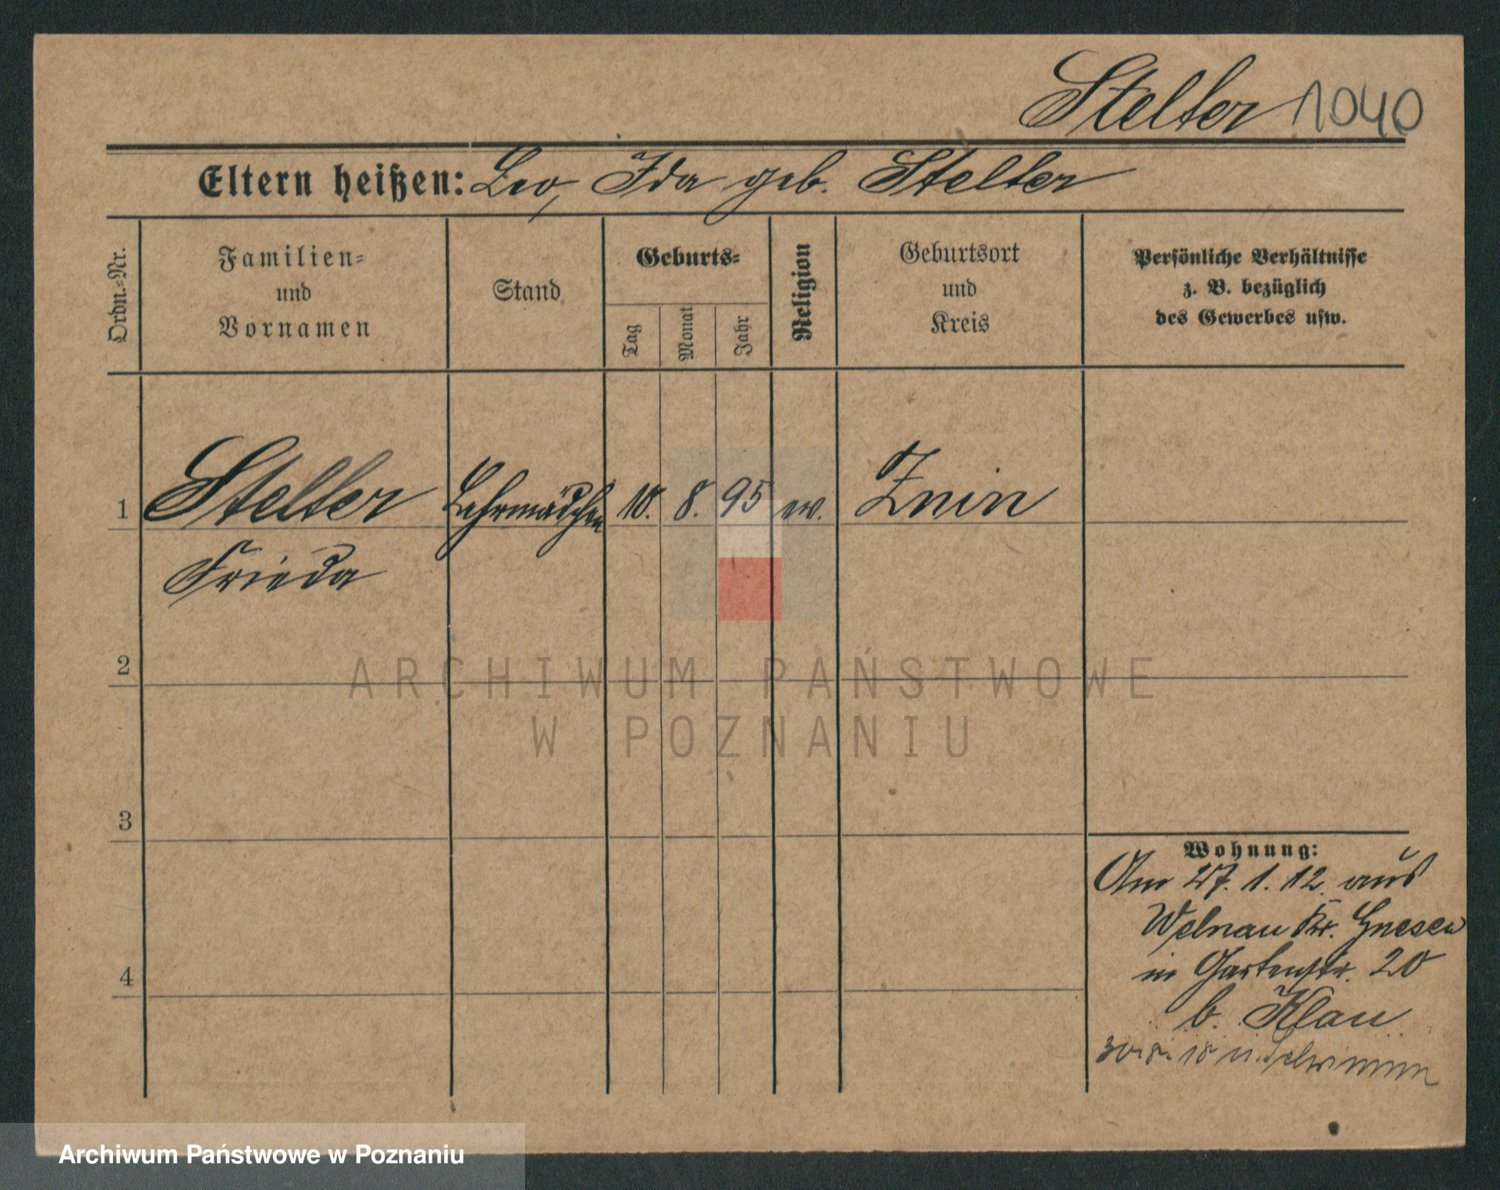 Stelter 1040
Eltern heißen: Leo, Ida geb. Stelter
Ordn.=Nr.
Familien=
und
Vornamen
Stand
Geburts=
Tag
Monat
Jahr
Religion
Geburtsort
und
Kreis
Persönliche Verhältnisse
z. B. bezüglich
des Gewerbes usw.
1 Stelter Lehrmädchen 10. 8. 95 ev. Znin
Frieda
2
3
4
Wohnung:
Am 27. 1. 12. aus
Welnau Kr. Gnesen
in Gartenstr. 20
b. Klau
18 n.
ARCHIWUM PAŃSTWOWE
W POZNANIU
Archiwum Państwowe w Poznaniu